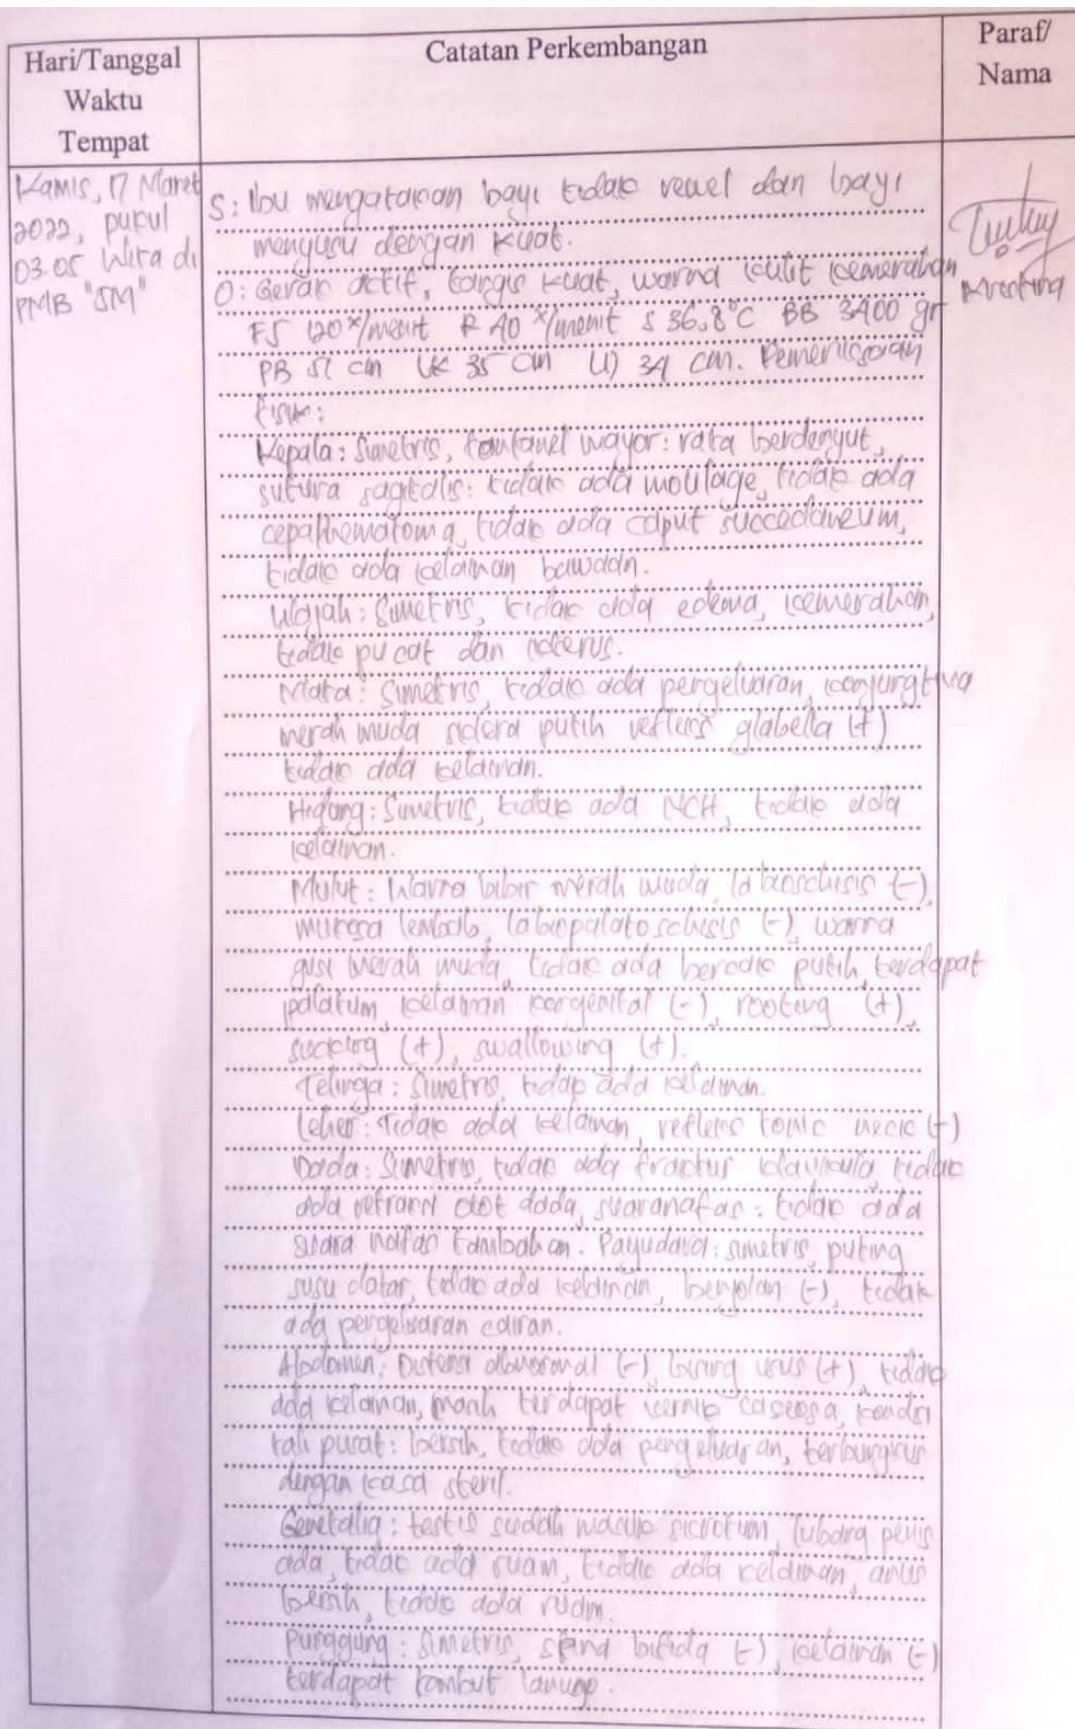 Hari/Tanggal
Waktu
Tempat
Catatan Perkembangan
Paraf/
Nama
Kamis, 17 Maret
2022, pukul
03.05 Wita di
PMB "SM"
S: Ibu mengatakan bayi tidak rewel dan bayi
menyusu dengan kuat.
O: Gerak aktif, tangis kuat, warna kulit kemerahan
FJ 120 x/menit R 40 x/menit S 36,8°C BB 3400 gr
PB 51 cm LK 35 cm LD 34 cm. Pemeriksaan
fisik:
Kepala: Simetris, fontanel mayor: rata berdenyut,
sutura sagitalis: tidak ada moulage, tidak ada
cepalhematoma, tidak ada caput succedaneum,
tidak ada kelainan bawaan.
Wajah: Simetris, tidak ada edema, kemerahan,
tidak pucat dan ikterus.
Mata: Simetris, tidak ada pengeluaran, konjungtiva
merah muda sklera putih refleks glabella (+)
tidak ada kelainan.
Hidung: Simetris, tidak ada NCH, tidak ada
kelainan.
Mulut: Warna bibir merah muda, labioschisis (-),
mukosa lembab, labiopalatoschisis (-), warna
gusi merah muda, tidak ada bercak putih, terdapat
palatum, kelainan kongenital (-), rooting (+),
sucking (+), swallowing (+).
Telinga: Simetris, tidak ada kelainan.
Leher: Tidak ada kelainan, refleks tonic neck (+)
Dada: Simetris, tidak ada fraktur klavikula, tidak
ada retraksi otot dada, suara nafas: tidak ada
suara nafas tambahan. Payudara: simetris, puting
susu datar, tidak ada kelainan, benjolan (-), tidak
ada pengeluaran cairan.
Abdomen: Distensi abnormal (-), bising usus (+), tidak
ada kelainan, masih terdapat vernik caseosa, kondisi
tali pusat: bersih, tidak ada pengeluaran, terbungkus
dengan kasa steril.
Genetalia: testis sudah masuk skrotum, lubang penis
ada, tidak ada ruam, tidak ada kelainan, anus
bersih, tidak ada ruam.
Punggung: Simetris, spina bifida (-), kelainan (-)
terdapat rambut lanugo.